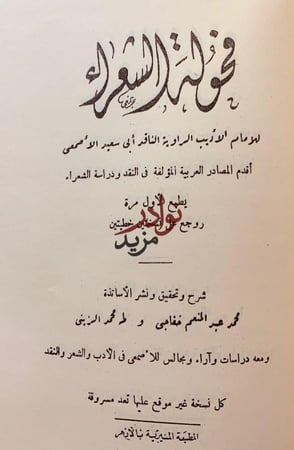 فحولة الشعراء
للإمام الأديب الراوية الناقد أبى سعيد الأصمعى
أقدم المصادر العربية المؤلفة فى النقد ودراسة الشعراء
يطبع لأول مرة
نوادر
وراجع خطيتين
مزيد
شرح وتحقيق ونشر الأساتذة
محمد عبد المنعم خفاجى و طه محمد الزينى
ومعه دراسات وآراء ومجالس للأصمعى فى الأدب والشعر والنقد
كل نسخة غير موقع عليها تعد مسروقة
المطبعة المنيرية بالأزهر